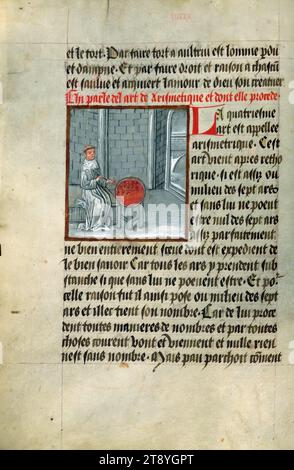 et le tort. Par faire tort a aultruy est lomme perdu
et dampne. Et par faire droit et raison a chascun
est saulue et acquiert lamour de dieu son createur
Cy parle del art de Arismetique et dont elle procede
Le quatriesme
art est appellee
arismetrique. Cest
art vient apres retho
rique. si est assiz ou
milieu des sept ars.
et sans lui ne poent
estre nul des sept ars
assez parfaitement
ne bien entierement sceue tout est expedient de
le bien sauoir. Car tous les ars y prendent sub
stanche si que sans lui ne poeuent estre. Et po
celle raison fut il ainsi pose ou milieu des sept
ars et illec tient son nombre. Car de lui proce
dent toutes manieres de nombres et par toutes
choses courent vont et viennent et nulle rien
nest sans nombre. Mais pau parchoit coment
alamy
Image ID: 2T8YGPT
www.alamy.com